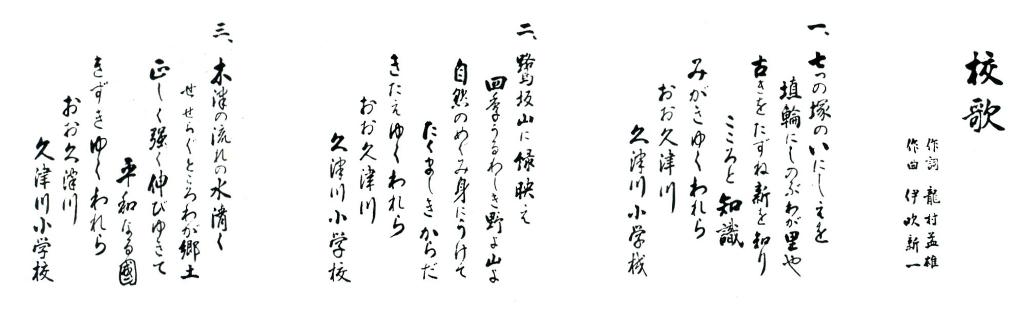 校歌
作詞 龍村孟雄
作曲 伊吹新一
一、七つの塚のいにしえを
埴輪にしのぶわが里や
古きをたずね新を知り
こころと知識
みがきゆくわれら
おお久津川
久津川小学校
二、鷺坂山に緑映え
四季うるわしき野よ山よ
自然のめぐみ身にうけて
たくましきからだ
きたえゆくわれら
おお久津川
久津川小学校
三、木津の流れの水清く
せせらぐところわが郷土
正しく強く伸びゆきて
平和なる國
きずきゆくわれら
おお久津川
久津川小学校